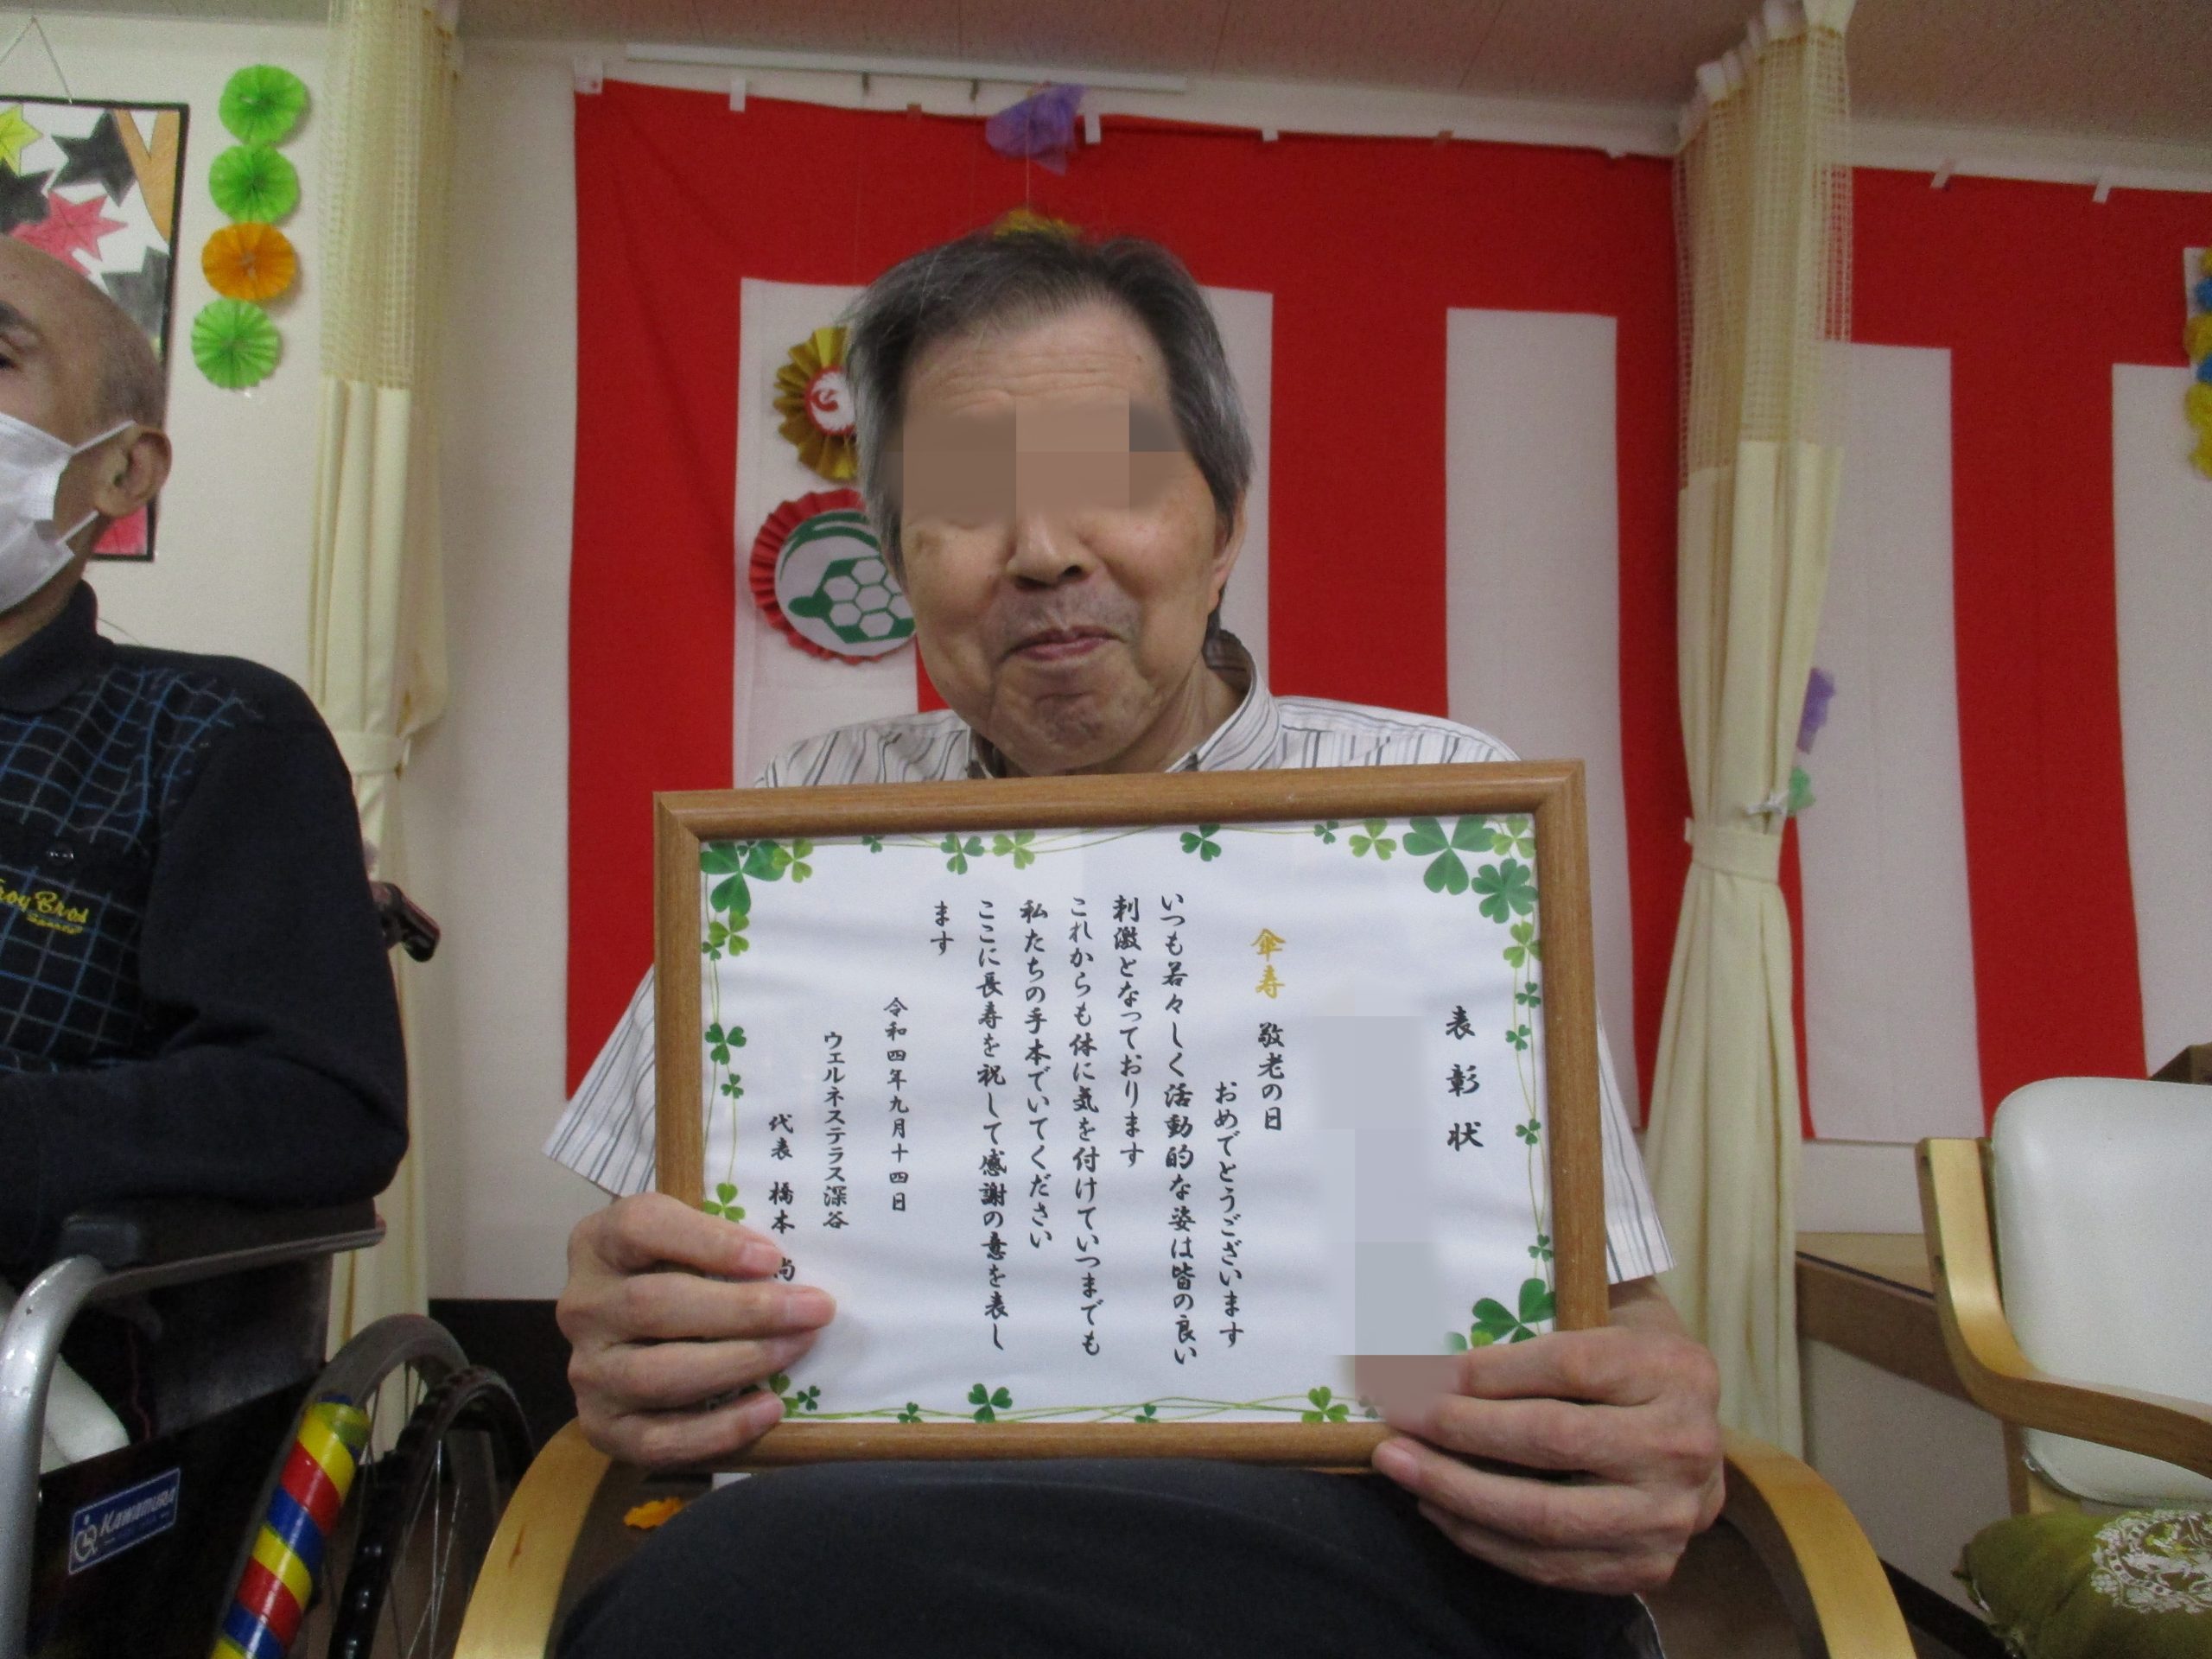 表彰状
傘寿 敬老の日
おめでとうございます
いつも若々しく活動的な姿は皆の良い
刺激となっております
これからも体に気を付けていつまでも
私たちの手本でいてください
ここに長寿を祝して感謝の意を表し
ます
令和四年九月十四日
ウェルネステラス深谷
代表 橋本 尚
Bros
KAWAMURA